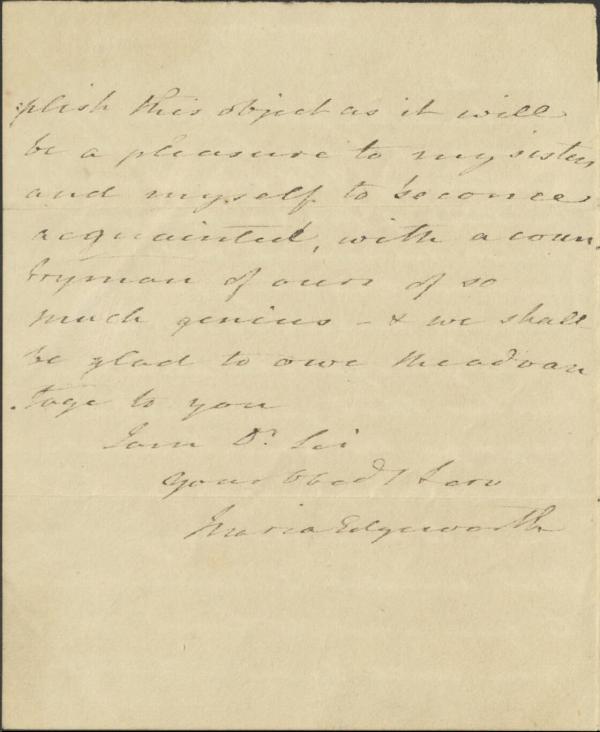 :plish this object as it will
be a pleasure to my sister
and myself to become
acquainted, with a coun
tryman of ours of so
much genius - & we shall
be glad to owe the advan
.tage to you
I am Dr. Sir
your Obedt Serv
Maria Edgeworth